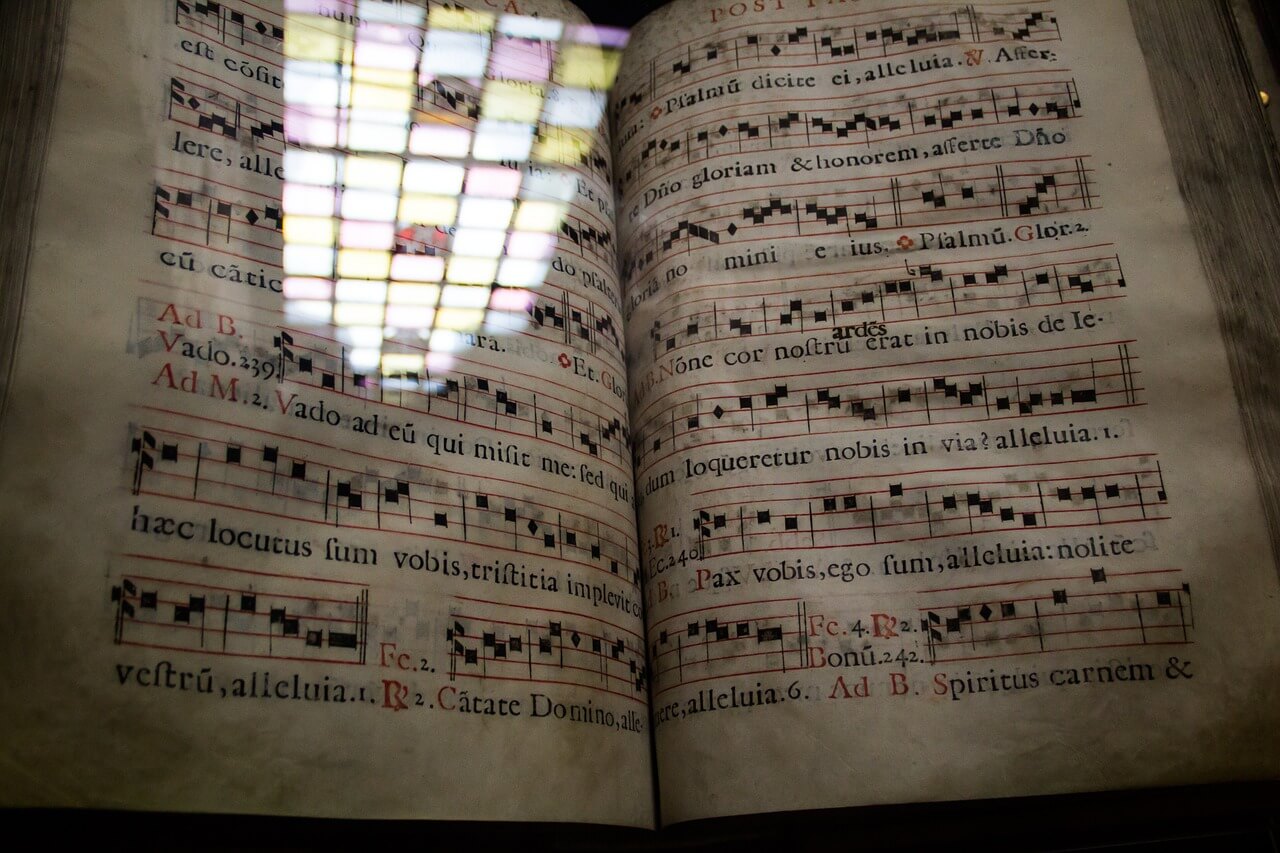 CA
num
est cõsit
lere, alle
ia: Et
cũ cãtic do psal
Ad B. ara. Et. Glo
Vado.239.
Ad M. 2. Vado ad eũ qui misit me: sed qui
hæc locutus sum vobis, tristitia implevit
vestrũ, alleluia. 1. ℟ 2. Cãtate Domino, alle-
Fe. 2.
POST
Psalmũ dicite ei, alleluia. ℣. Affer-
te Dño gloriam & honorem, afferte Dño
gloriã no mini e ius. Psalmũ. Glor. 2.
ardẽs
B. Nóne cor nostrũ erat in nobis de Ie-
dum loqueretur nobis in via? alleluia. 1.
℟ 1.
Fc. 240.
Pax vobis, ego sum, alleluia: nolite
Fc. 4. ℟ 2.
Bonũ. 242.
ere, alleluia. 6. Ad B. Spiritus carnem &